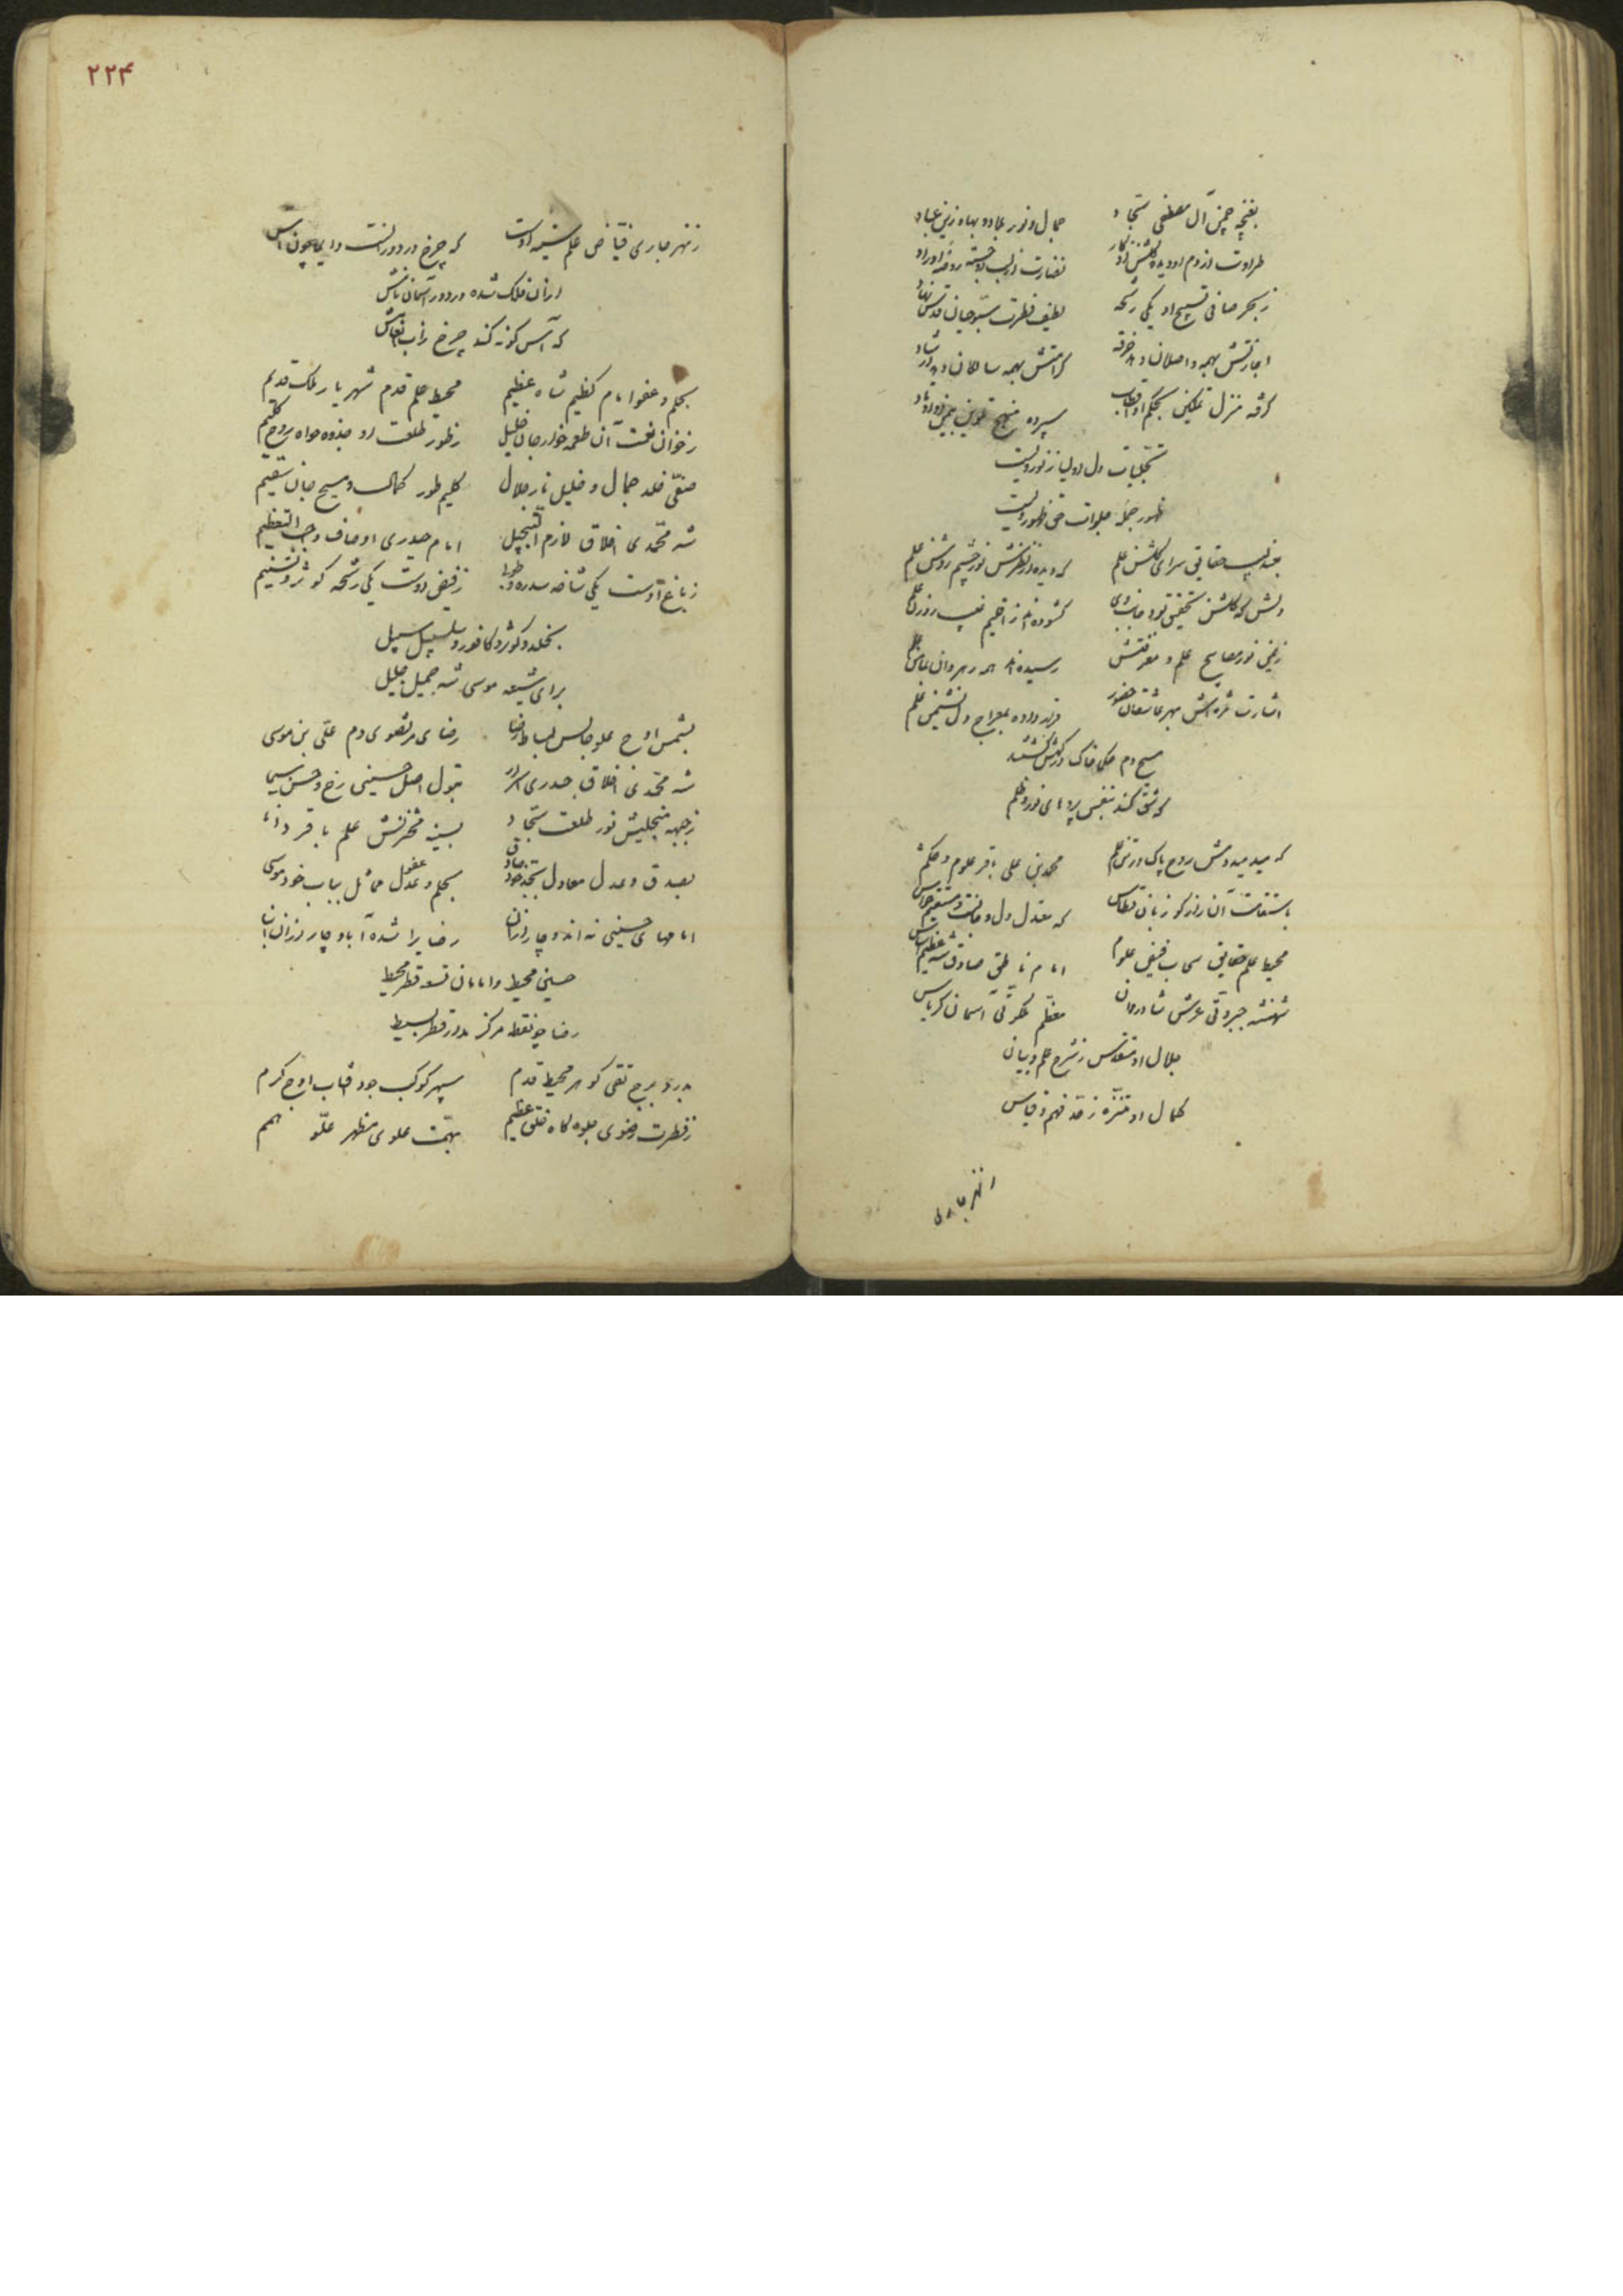 بغنچه چمن آل مصطفی سجاد جمال و نور عباد و بهاء زین عباد
طراوت از دم او دیده گلشن اذکار نضارت از لب او جسته روضه اوراد
ز بحر صافی تسبیح او یکی رشحه لطیف فطرت سبوحیان قدس نهاد
اجازتش بهمه واصلان دهد خرقه کرامتش بهمه سالکان دهد ارشاد
گرفته منزل تمکین بحکم او اقطاب سپرده منهج تلوین
تجلیات دل اولیا ز نور ویست
ظهور جمله جلوات حق ظهور ویست
بعندلیب حقایق سرای گلشن علم که دیده از نظرش نور چشم روشن علم
دلش که گلشن تحقیق بود جانب وی گشوده اند ز اقلیم غیب روزن علم
ز فیض نور مصابیح علم و معرفتش رسیده اند همه رهروان بمأمن علم
اشارت مژه اش بهر عاشقان حضور دل نشیمن علم
مسیح دم ملکی خاک درگهش گشتند
که شق کند بنفس پرده های نور و ظلم
که میدمید دمش روح پاک در تن علم محمد بن علی باقر علوم و حکم
باستقامت آن رازگو زبان قسطاس که معتدل دل و جانست و مستقیم حواس
محیط علم حقایق سحاب فیض علوم امام ناطق صادق شه عظیم
شهنشه جبروتی عرش شادروان معظم ملکوتی آسمان کریاس
جلال او متقدس ز شرح علم و بیان
کمال او متنزه ز حد فهم و قیاس
ز نهر جاری
۲۲۴
ز نهر جاری فیاض علم شیعه اوست که چرخ در دورانست دایما چون آس
از آن فلک شده در دور آسمان تابش
که آس گونه کند چرخ زآب انفاسش
بحلم و عفو امام کظیم شاه عظیم محیط حلم قدم شهریار ملک قدیم
ز خوان نعمت آن طعمه خوار جان خلیل ز طور طلعت او جذوه خواه روح کلیم
صفی خلد جمال و خلیل نار جلال کلیم طور کمالست و مسیح جان سقیم
شه محمدی اخلاق لازم التبجیل امام حیدری اوصاف واجب التعظیم
ز باغ اوست یکی شاخه سدره و طوبا ز فیض اوست یکی رشحه کوثر و تسنیم
بخلد و کوثر و کافور و سلسبیل سبیل
برای شیعه موسی شه جمیل جلیل
بشمس اوج علو جالس بساط رضا رضای مرتضوی دم علی بن موسی
شه محمدی اخلاق حیدری اسرار بتول اصل حسینی رخ و حسن سیما
ز جبهه متجلیش نور طلعت سجاد بسینه مخزنش علم باقر دانا
بصدق و عدل معادل بجد خود صادق بحلم و عفو مماثل بباب خود موسی
امامهای حسینی نه اند و چار از آن رضایرا شده آباد و چار از آن ابنا
حسین محیط و امامان تسعه قطر محیط
رضا چو نقطه مرکز مدار قطر بسیط
بدر برج تقی گوهر محیط قدم سپهر کوکب جود آفتاب اوج کرم
ز فطرت رضوی جلوه گاه خلق عظیم بهمت علوی مظهر علو همم